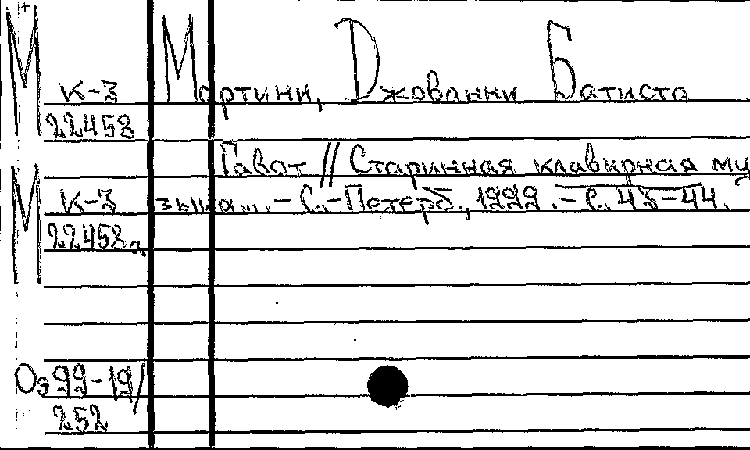 М Мартини, Джованни Батиста
к-3
22458
Гавот // Старинная клавирная му
М к-3 зыка... - С.-Петерб., 1999. - С. 43-44.
22458а
Оз 99-19/
252